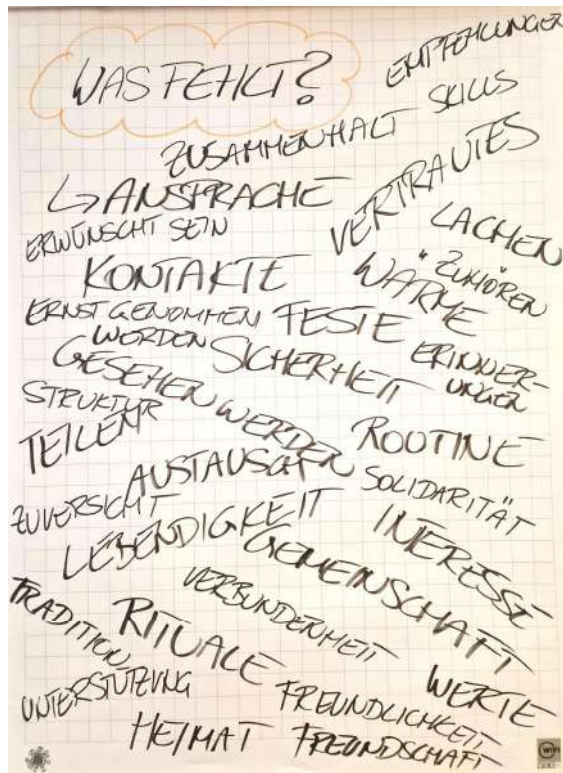 WAS FEHLT?
EMPFEHLUNGEN
SKILLS
ZUSAMMENHALT
↳ ANSPRACHE
VERTRAUTES
ERWÜNSCHT SEIN
LACHEN
KONTAKTE
WÄRME
ZUHÖREN
ERNST GENOMMEN
WERDEN
FESTE
ERINNER-
UNGEN
GESEHEN WERDEN
SICHERHEIT
STRUKTUR
TEILEN
ROUTINE
AUSTAUSCH
SOLIDARITÄT
ZUVERSICHT
LEBENDIGKEIT
INTERESSE
GEMEINSCHAFT
VERBUNDENHEIT
TRADITION
RITUALE
WERTE
UNTERSTÜTZUNG
FREUNDLICHKEIT
HEIMAT
FREUNDSCHAFT
WIFI